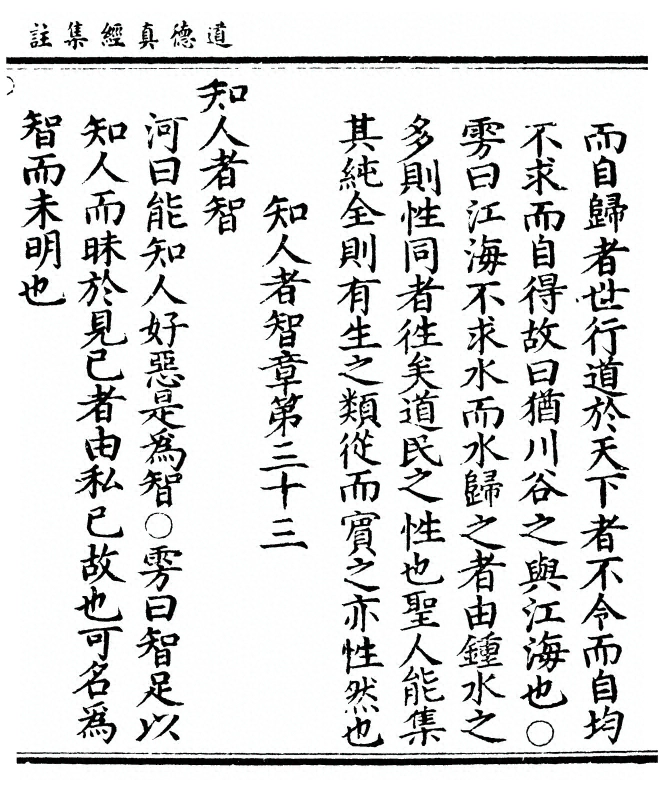 道德真經集註
而自歸者世行道於天下者不令而自均
不求而自得故曰猶川谷之與江海也○
雱曰江海不求水而水歸之者由鍾水之
多則性同者徃矣道民之性也聖人能集
其純全則有生之類從而賓之亦性然也
知人者智章第三十三
知人者智
河曰能知人好惡是為智○雱曰智足以
知人而昧於見己者由私己故也可名為
智而未明也